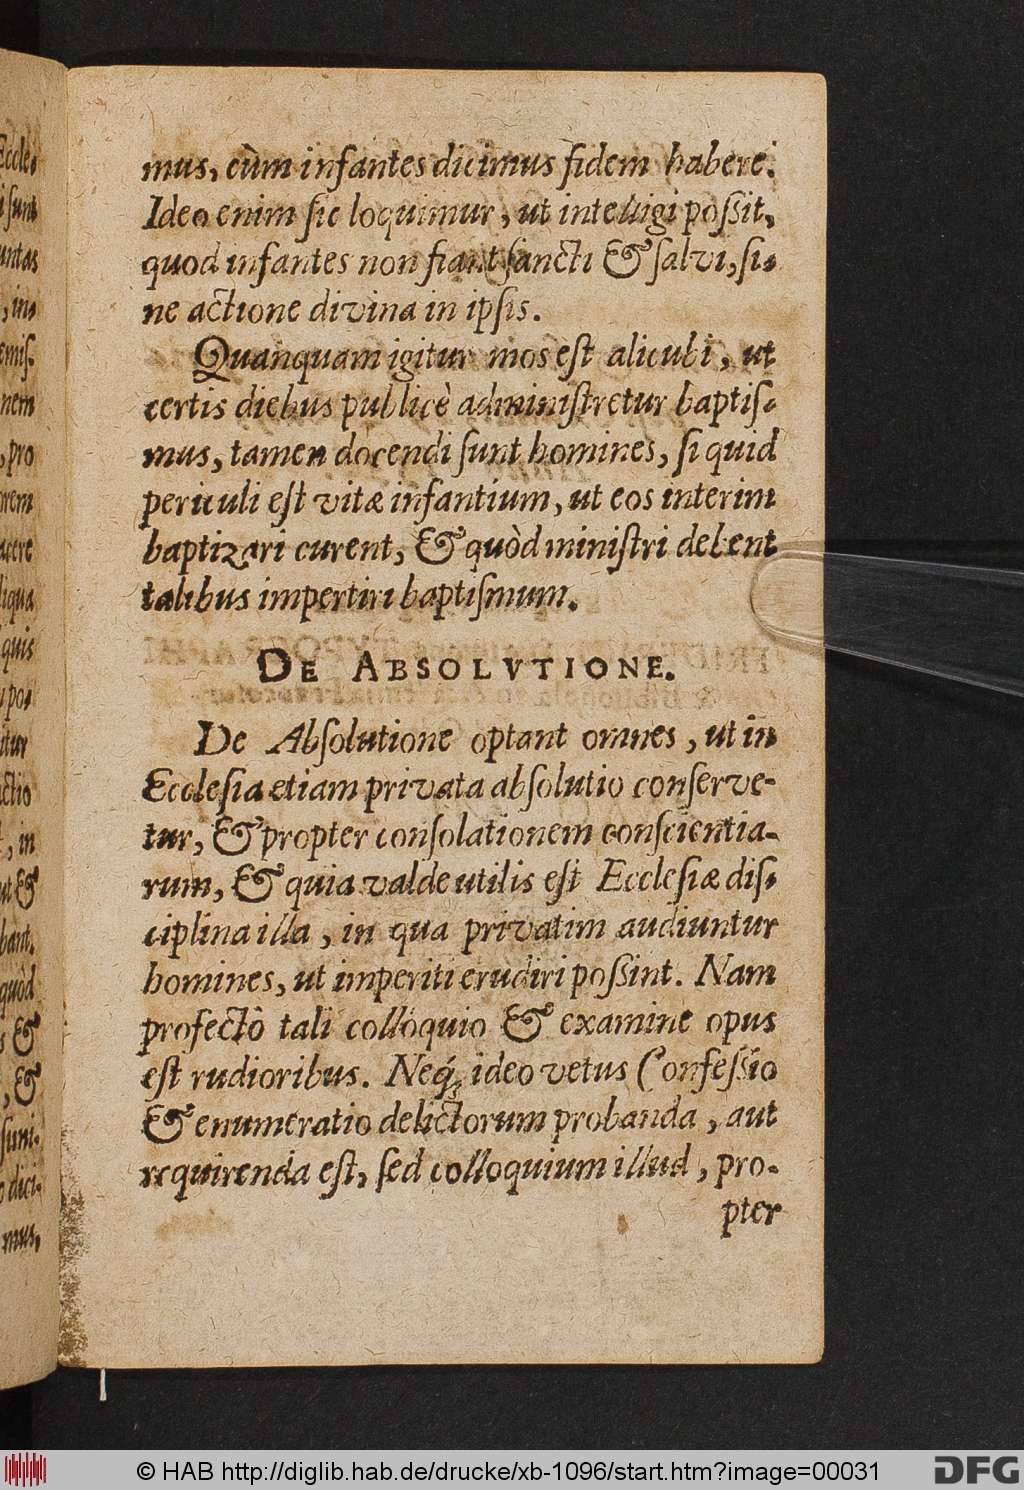 mus, cùm infantes dicimus fidem habere.
Ideo enim sic loquimur, ut intelligi poßit,
quod infantes non fiant sancti & salvi, si-
ne actione divina in ipsis.
Quanquam igitur mos est alicubi, ut
certis diebus publicè administretur baptis-
mus, tamen docendi sunt homines, si quid
periculi est vitæ infantium, ut eos interim
baptizari curent, & quòd ministri debent
talibus impertiri baptismum.
DE ABSOLVTIONE.
De Absolutione optant omnes, ut in
Ecclesia etiam privata absolutio conserve-
tur, & propter consolationem conscientia-
rum, & quia valde utilis est Ecclesiæ dis-
ciplina illa, in qua privatim audiuntur
homines, ut imperiti erudiri poßint. Nam
profectò tali colloquio & examine opus
est rudioribus. Neq́; ideo vetus Confeßio
& enumeratio delictorum probanda, aut
requirenda est, sed colloquium illud, pro-
pter
Eccle-
sunt
in-
nem
pro
rem
acere
liqua
quis
itur
ctio
, in
ut &
bant.
quòd
&
, &
dici-
mus,
© HAB http://diglib.hab.de/drucke/xb-1096/start.htm?image=00031
DFG